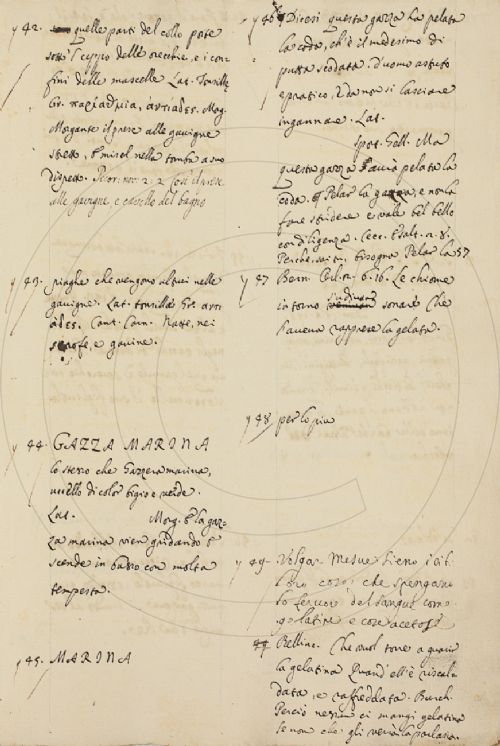 42. quelle parti del collo poste
sotto 'l ceppo delle orecchie, e i con-
fini delle mascelle Lat. Tonsillę
Gr. παρίσθμια, αντιάδες. Morg.
Morgante il prese alle gavigne
stretto, e misel nella tomba a suo
dispetto. 2. 2 Così il prese
alle gavigne, e cavollo del bagno
43. piaghe che vengono altrui nelle
gavigne. Lat. tonsillę Gr. αντι-
άδες. Cant. Carn. nei
e gavine.
44. GAZZA MARINA
lo stesso che Gazzera marina,
uccello di color bigio e verde.
Lat. Morg. E la gaz-
za marina vien gridando e
scende in basso con molta
tempesta.
45. MARINA
46 Dicesi questa gazza ha pelata
la coda, ch'è il medesimo di
putta scodata, d'uomo astuto
e pratico, e da non si lasciare
ingannare. Lat.
Gell. Ma
questa gazza pelata la
coda. Pelar la gazza, e non la
fare stridere e vale bel bello
con diligenza. Cecc. Esalt. 2. 8.
Perché bisogna Pelar la
47 Bern. Orl. 6. 16. Le chiome
intorno sonare che
haveva rapprese la gelata.
48 per lo più
49 Volgar. Mesue Sieno i cibi
loro cose che spengano
lo fervor del sangue come
gelatine e cose acetose
49. Bellinc. Che vuol torre a
la gelatina Quand'ell'è riscal-
data, e raffreddata. Burch.
Perciò nessun ci mangi gelatina
Se non che gli verria la parlasia.